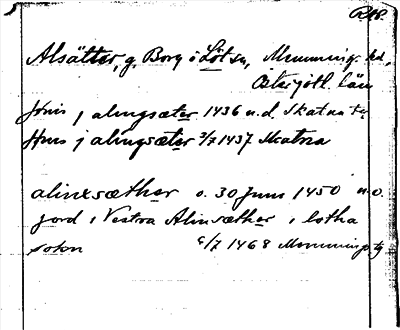 RAP.
Alsätter, g. Borg o Löt sn, Memmings hd,
Östergötl. län
Jönis j alingsæter 1436 n.d. Skatna
Jönis j alingsæter 3/7 1437 Skatna
alinxsæther o. 30 Juni 1450 n.o.
jord i Vestra Alinsæther i lotha
sokn 6/7 1468 Memmings